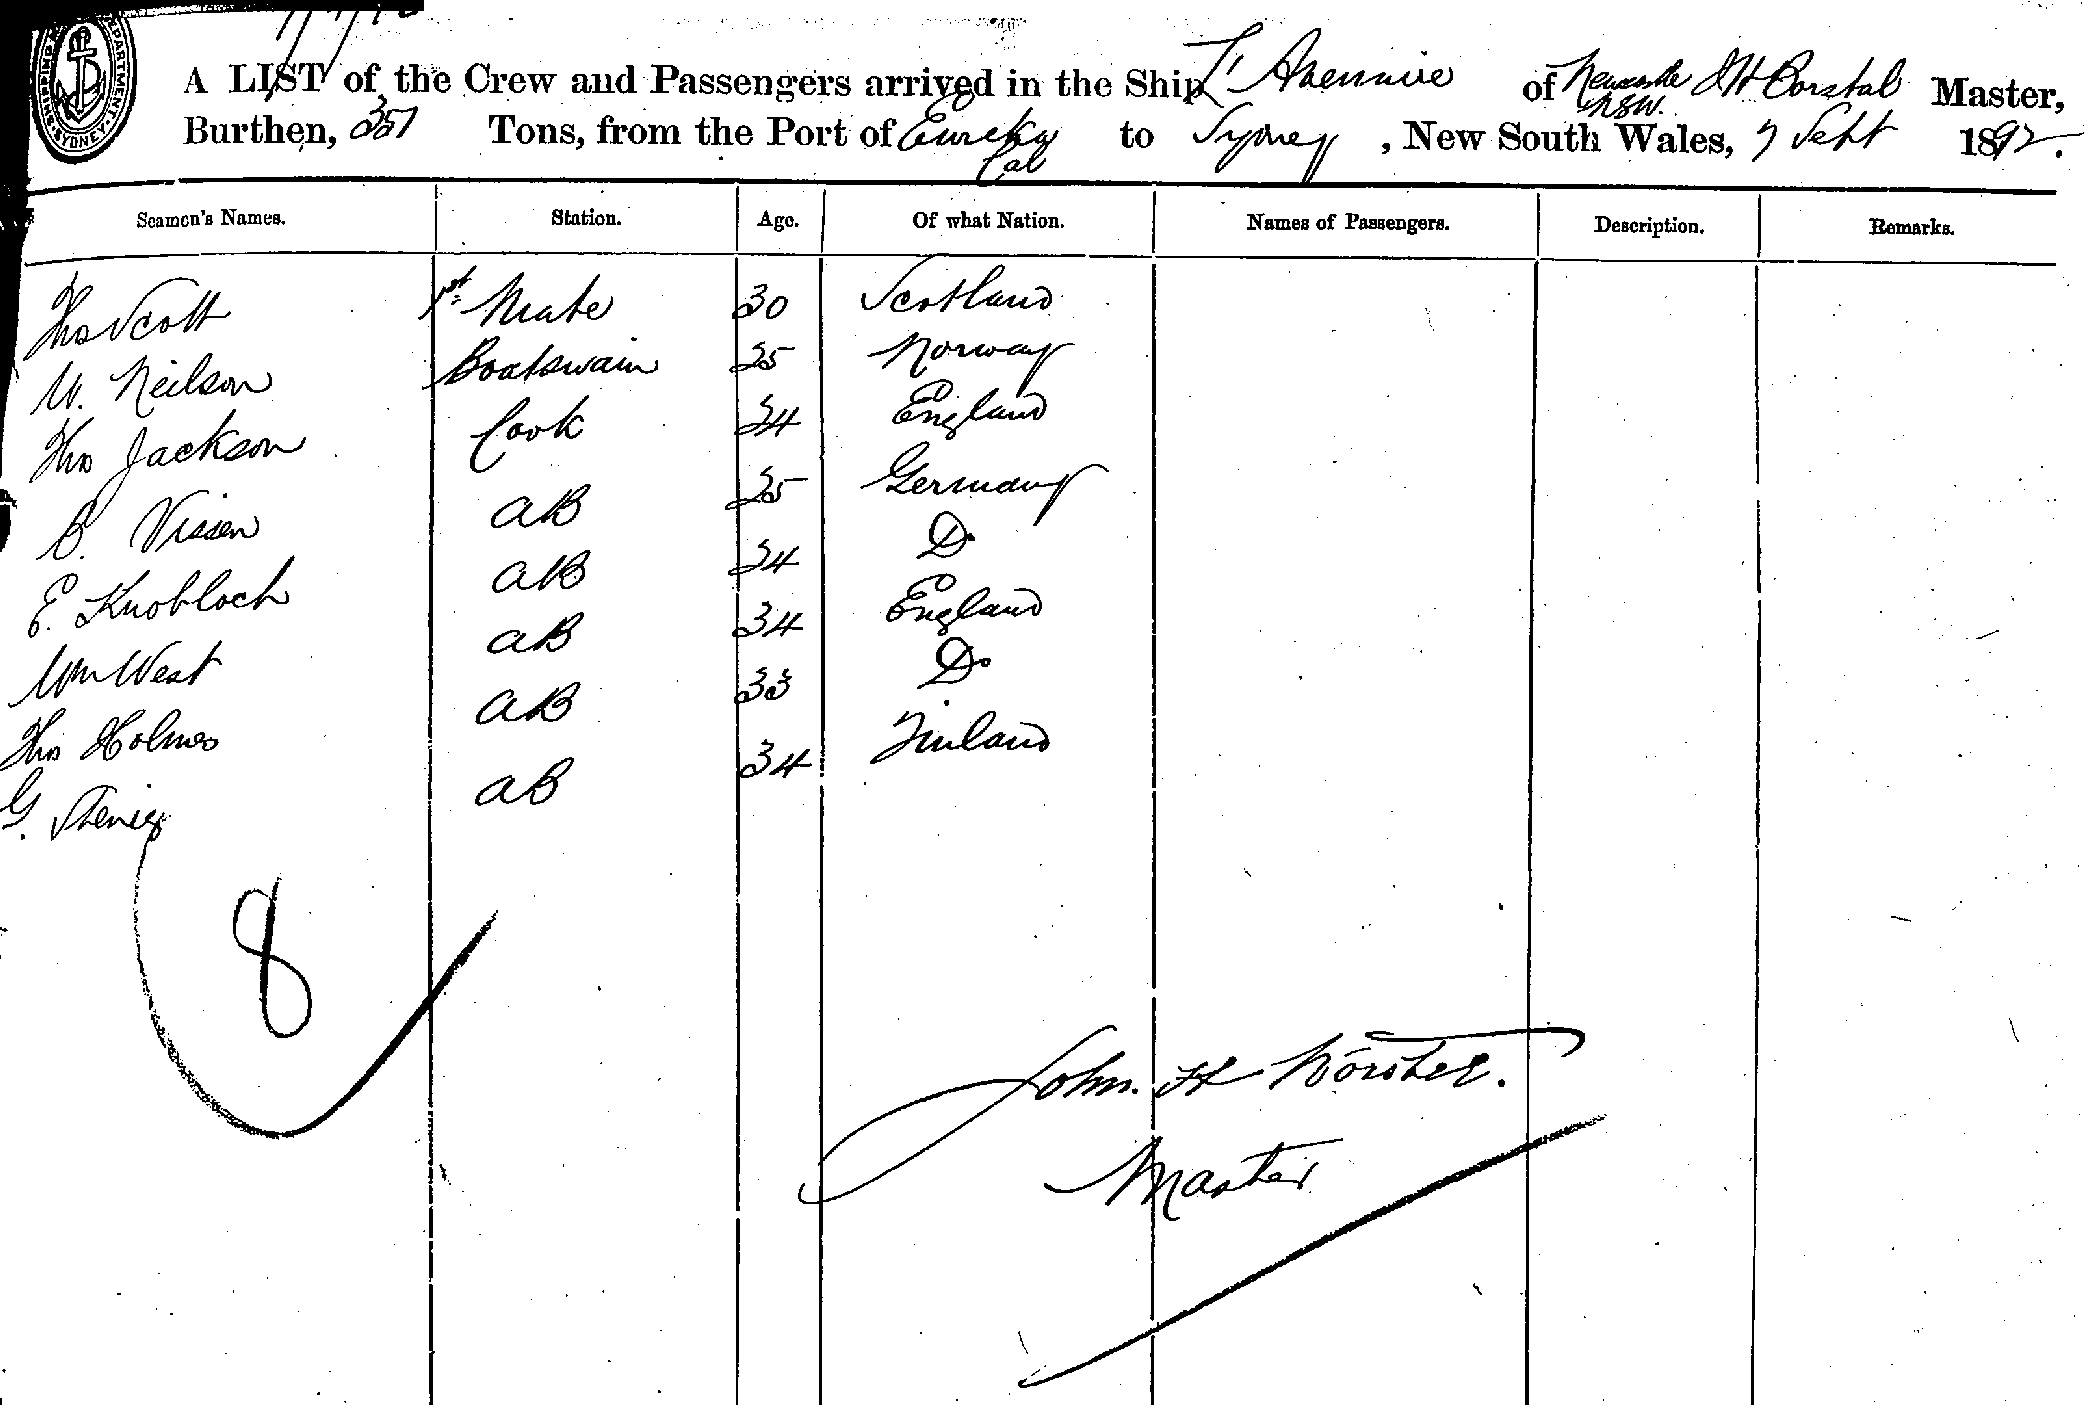 A LIST of the Crew and Passengers arrived in the Ship L'Avennire of Newcastle NSW. J H Corstal Master,
Burthen, 351 Tons, from the Port of Eureka Cal to Sydney, New South Wales, 7 Sept 1892.
Seamen's Names. Station. Age. Of what Nation. Names of Passengers. Description. Remarks.
Thos Scott 1st Mate 30 Scotland
W. Neilson Boatswain 25 Norway
Thos Jackson Cook 24 England
B. Vissen AB 25 Germany
E. Knobloch AB 24 Do
Wm West AB 34 England
Thos Holmes AB 33 Do
G. AB 34 Finland
8
John. H
Master